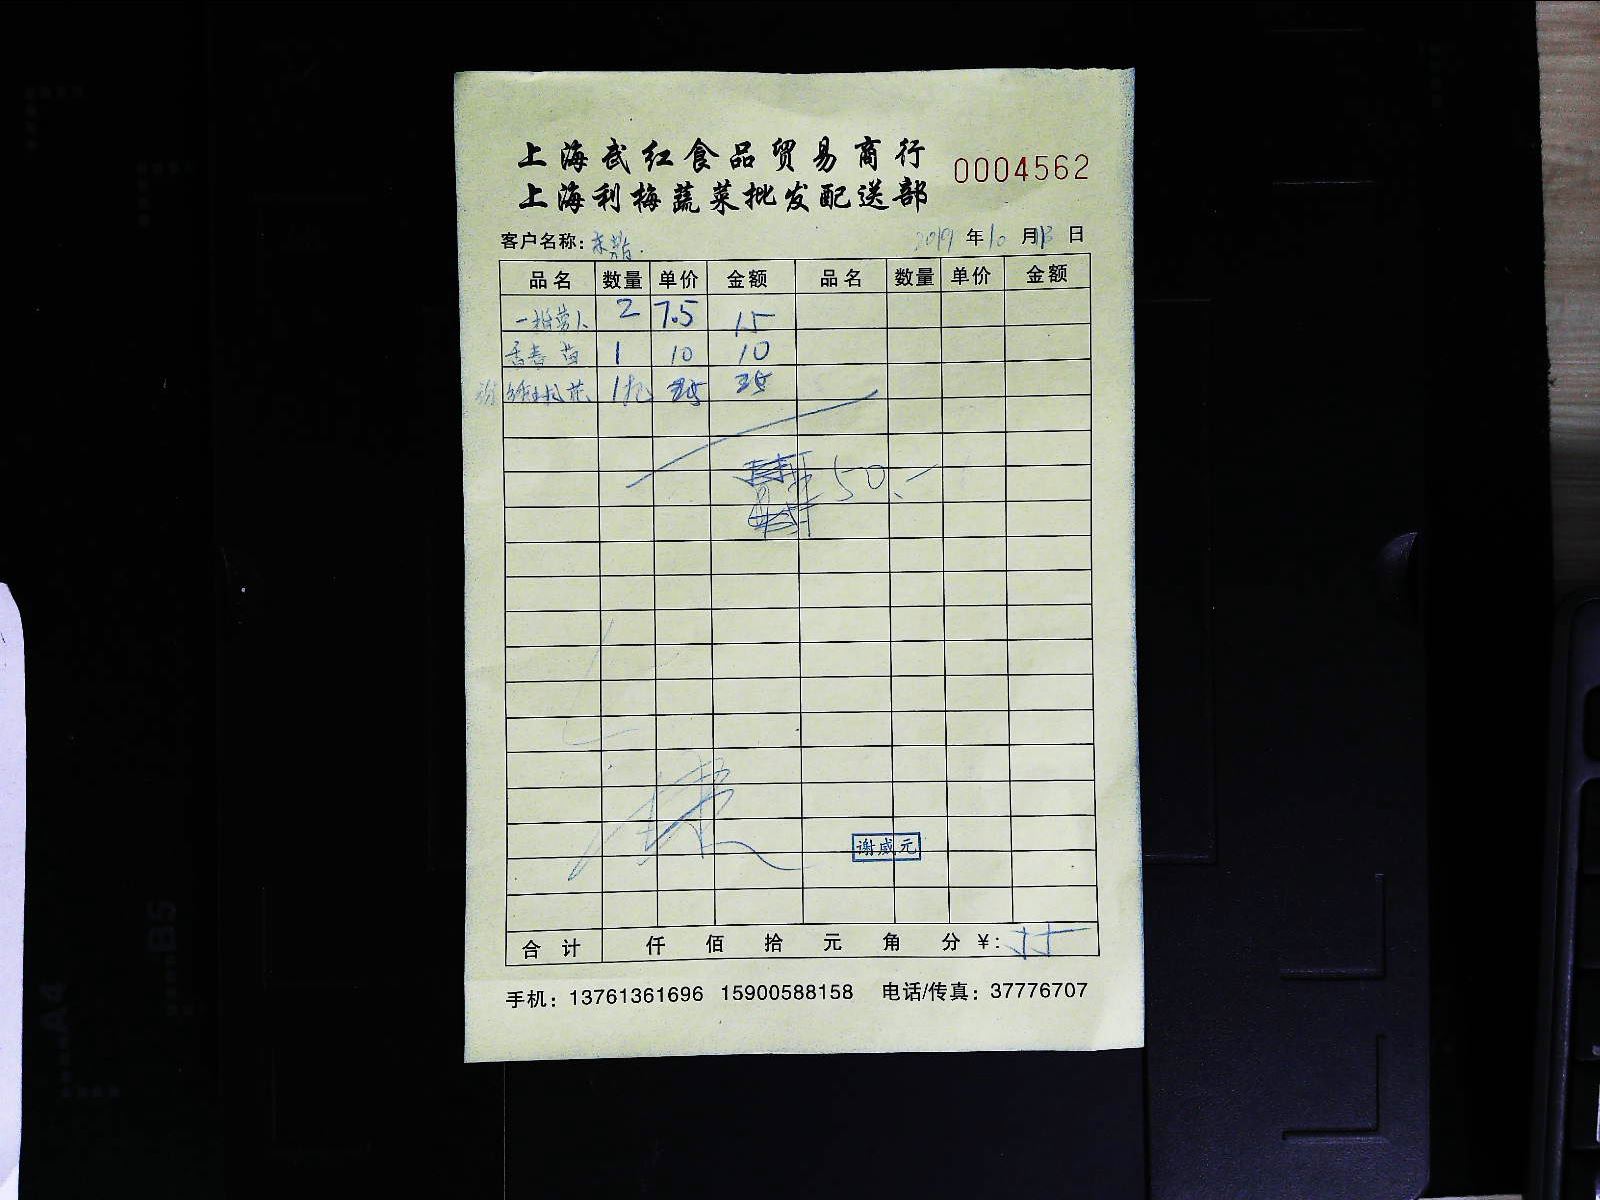 上海武红食品贸易商行
0004562
上海利梅蔬菜批发配送部
客户名称:
2019 年 10 月 13 日
品名 数量 单价 金额 品名 数量 单价 金额
2 7.5 15
1 10 10
1 25 25
50.-
谢威元
合计 仟 佰 拾 元 角 分 ¥:
手机：13761361696 15900588158 电话/传真：37776707
A4
B5